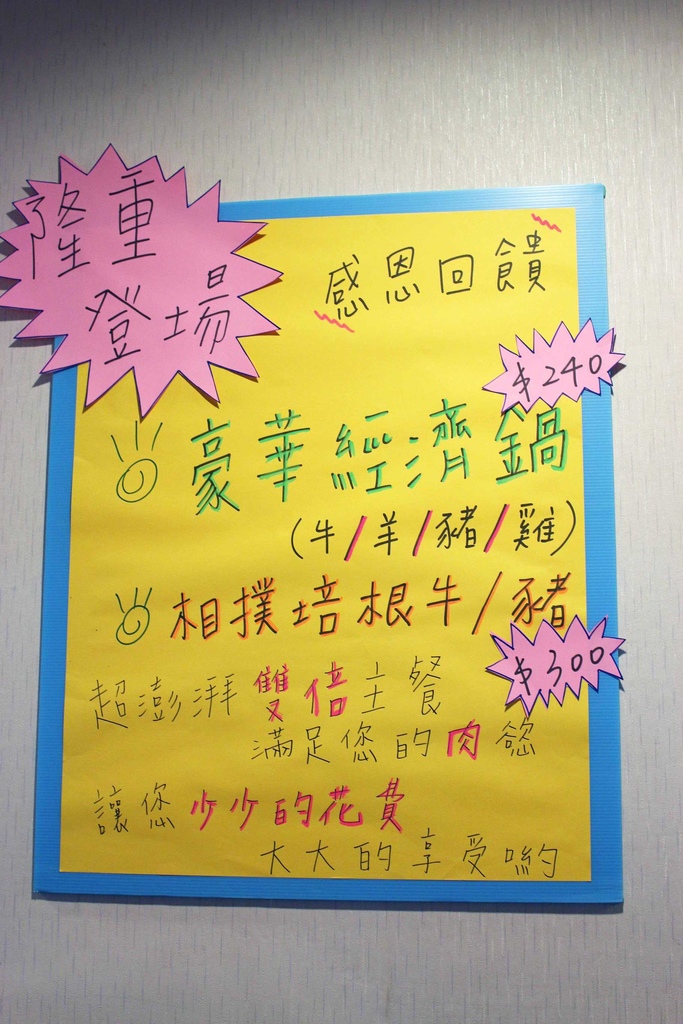 隆重
登場
感恩回饋
$240
豪華經濟鍋
(牛/羊/豬/雞)
相撲培根牛/豬
$300
超澎湃雙倍主餐
滿足您的肉慾
讓您少少的花費
大大的享受喲